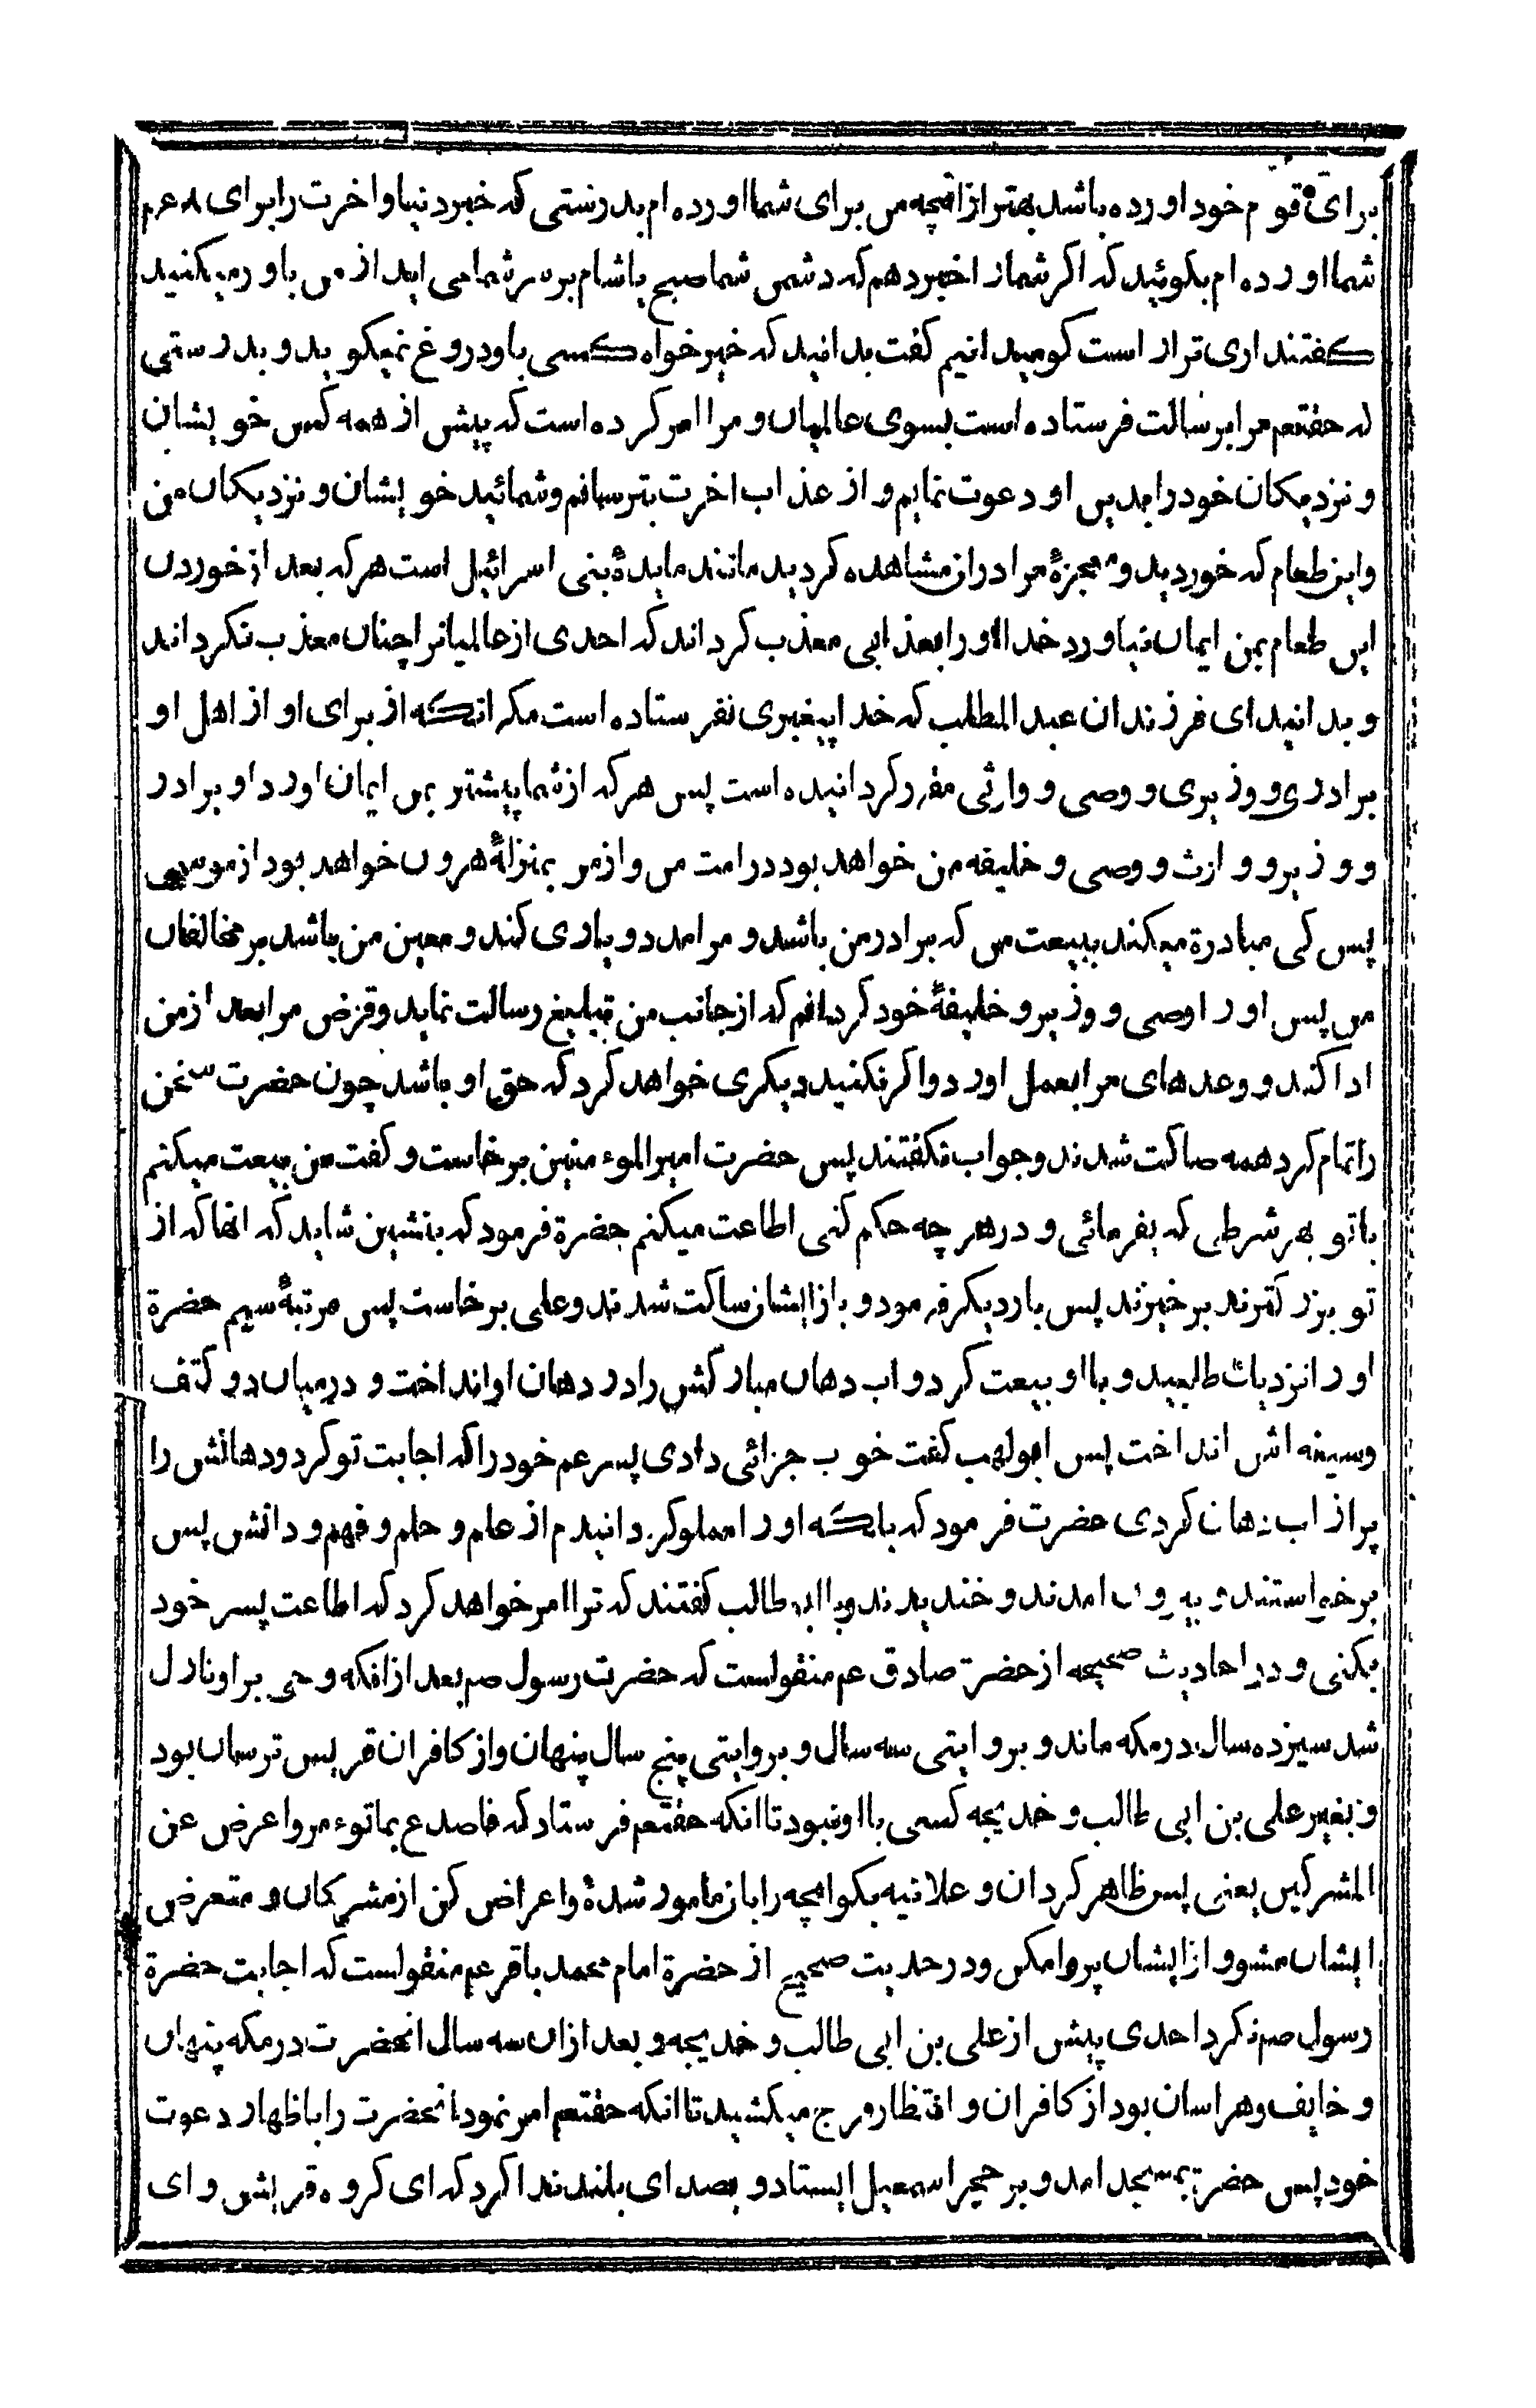 برای قوم خود اورده باشد بهتر از انچه من برای شما اورده ام بدرستی که خبر دنیا و اخرت را برای
شما اورده ام بکوئید که اکر شما را خبر دهم که دشمن شما صبح یا شام بر سر شما می اید از من باور میکنید
کفتند اری ترا راست کو میدانیم کفت بدانید که خیر خواه کسی باو دروغ نمیکوید و بدرستی
که حقتعم مرا برسالت فرستاده است بسوی عالمیان و مرا امر کرده است که پیش از همه کس خویشان
و نزدیکان خود را بدین او دعوت نمایم و از عذاب اخرت بترسانم و شمائید خویشان و نزدیکان من
و این طعام که خوردید و معجزهٔ مرا در ان مشاهده کردید مانند مایدهٔ بنی اسرائیل است هر که بعد از خوردن
این طعام بمن ایمان نیاورد خدا او را بعذابی معذب کرداند که احدی از عالمیانرا چنان معذب نکرداند
و بدانید ای فرزندان عبد المطلب که خدا پیغمبری نفرستاده است مکر انکه از برای او از اهل او
برادری و وزیری و وصی و وارثی مقرر کردانیده است پس هر که از شما پیشتر بمن ایمان اورد او برادر
و وزیر و وارث و وصی و خلیفه من خواهد بود در امت من و از من بمنزلهٔ هرون خواهد بود از موسی
پس کی مبادرة میکند ببیعت من که برادر من باشد و مرا مدد و یاری کند و معین من باشد بر مخالفان
من پس او را وصی و وزیر و خلیفهٔ خود کردانم که از جانب من تبلیغ رسالت نماید و قرض مرا بعد از من
ادا کند و وعدهای مرا بعمل اورد و اکر نکنید دیکری خواهد کرد که حق او باشد چون حضرت سخن
را تمام کرد همه ساکت شدند و جواب نکفتند پس حضرت امیر الموءمنین برخاست و کفت من بیعت میکنم
با تو بهر شرطی که بفرمائی و در هر چه حکم کنی اطاعت میکنم حضرة فرمود که بنشین شاید که انها که از
تو بزرکترند برخیزند پس بار دیکر فرمود و باز ایشان ساکت شدند و علی برخاست پس مرتبهٔ سیم حضرة
او را نزدیک طلبید و با او بیعت کرد و اب دهان مبارکش را در دهان او انداخت و در میان دو کتف
و سینه اش انداخت پس ابولهب کفت خوب جزائی دادی پسر عم خود را که اجابت تو کرد و دهانش را
پر از اب دهان کردی حضرت فرمود که بلکه او را مملو کردانیدم از علم و حلم و فهم و دانش پس
برخواستند و بیرون امدند و خندیدند و با ابو طالب کفتند که ترا امر خواهد کرد که اطاعت پسر خود
بکنی و در احادیث صحیحه از حضرت صادق عم منقولست که حضرت رسول صم بعد از انکه وحی بر او نازل
شد سیزده سال در مکه ماند و بروایتی سه سال و بروایتی پنج سال پنهان و از کافران قریس ترسان بود
و بغیر علی بن ابی طالب و خدیجه کسی با او نبود تا انکه حقتعم فرستاد که فاصدع بما توءمر و اعرض عن
المشرکین یعنی پس ظاهر کردان و علانیه بکو انچه را بان مامور شدهٔ و اعراض کن از مشرکان و متعرض
ایشان مشو و از ایشان پروا مکن و در حدیت صحیح از حضرة امام محمد باقر عم منقولست که اجابت حضرة
رسول صم نکرد احدی پیش از علی بن ابی طالب و خدیجه و بعد از ان سه سال انحضرت در مکه پنهان
و خایف و هراسان بود از کافران و انتظار فرج میکشید تا انکه حقتعم امر نمود انحضرت را باظهار دعوت
خود پس حضرت بمسجد امد و بر حجر اسمعیل ایستاد و بصدای بلند ندا کرد که ای کروه قریش و ای